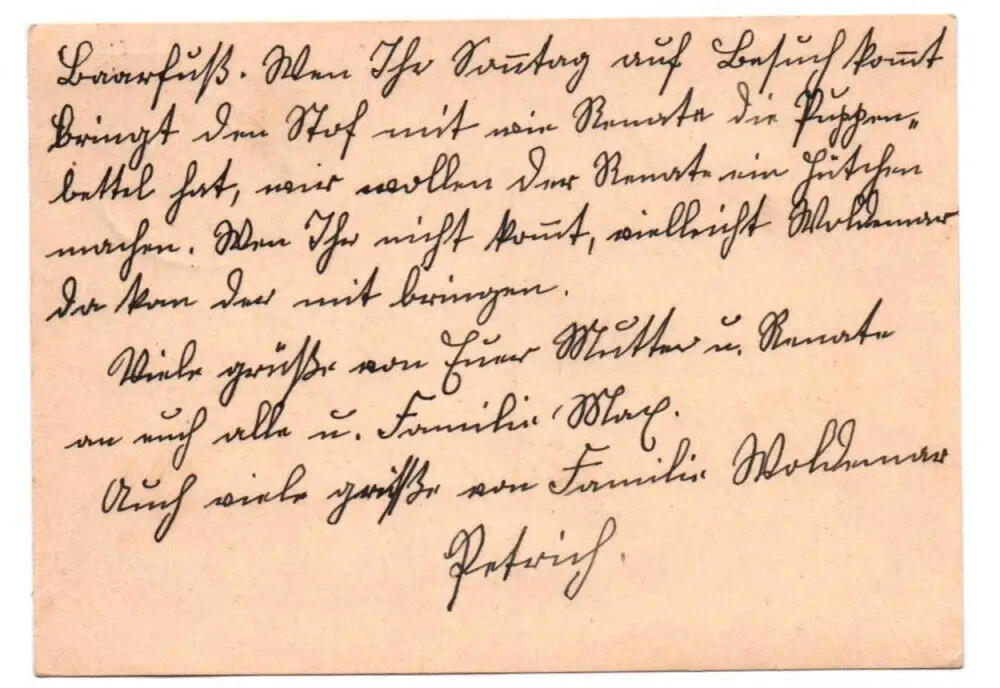 Baarfuß. Wen Ihr Son̄tag auf Besuch kom̄t
bringt den Stof mit wie Renate die Puppen„
bettel hat, wir wollen der Renate ein Hütchen
machen. Wen Ihr nicht kom̄t, vielleicht Woldemar
da kan der mit bringen.
Viele grüße von Euer Mutter u. Renate
an euch alle u. Familie Max.
Auch viele grüße von Familie Woldemar
Petrich.